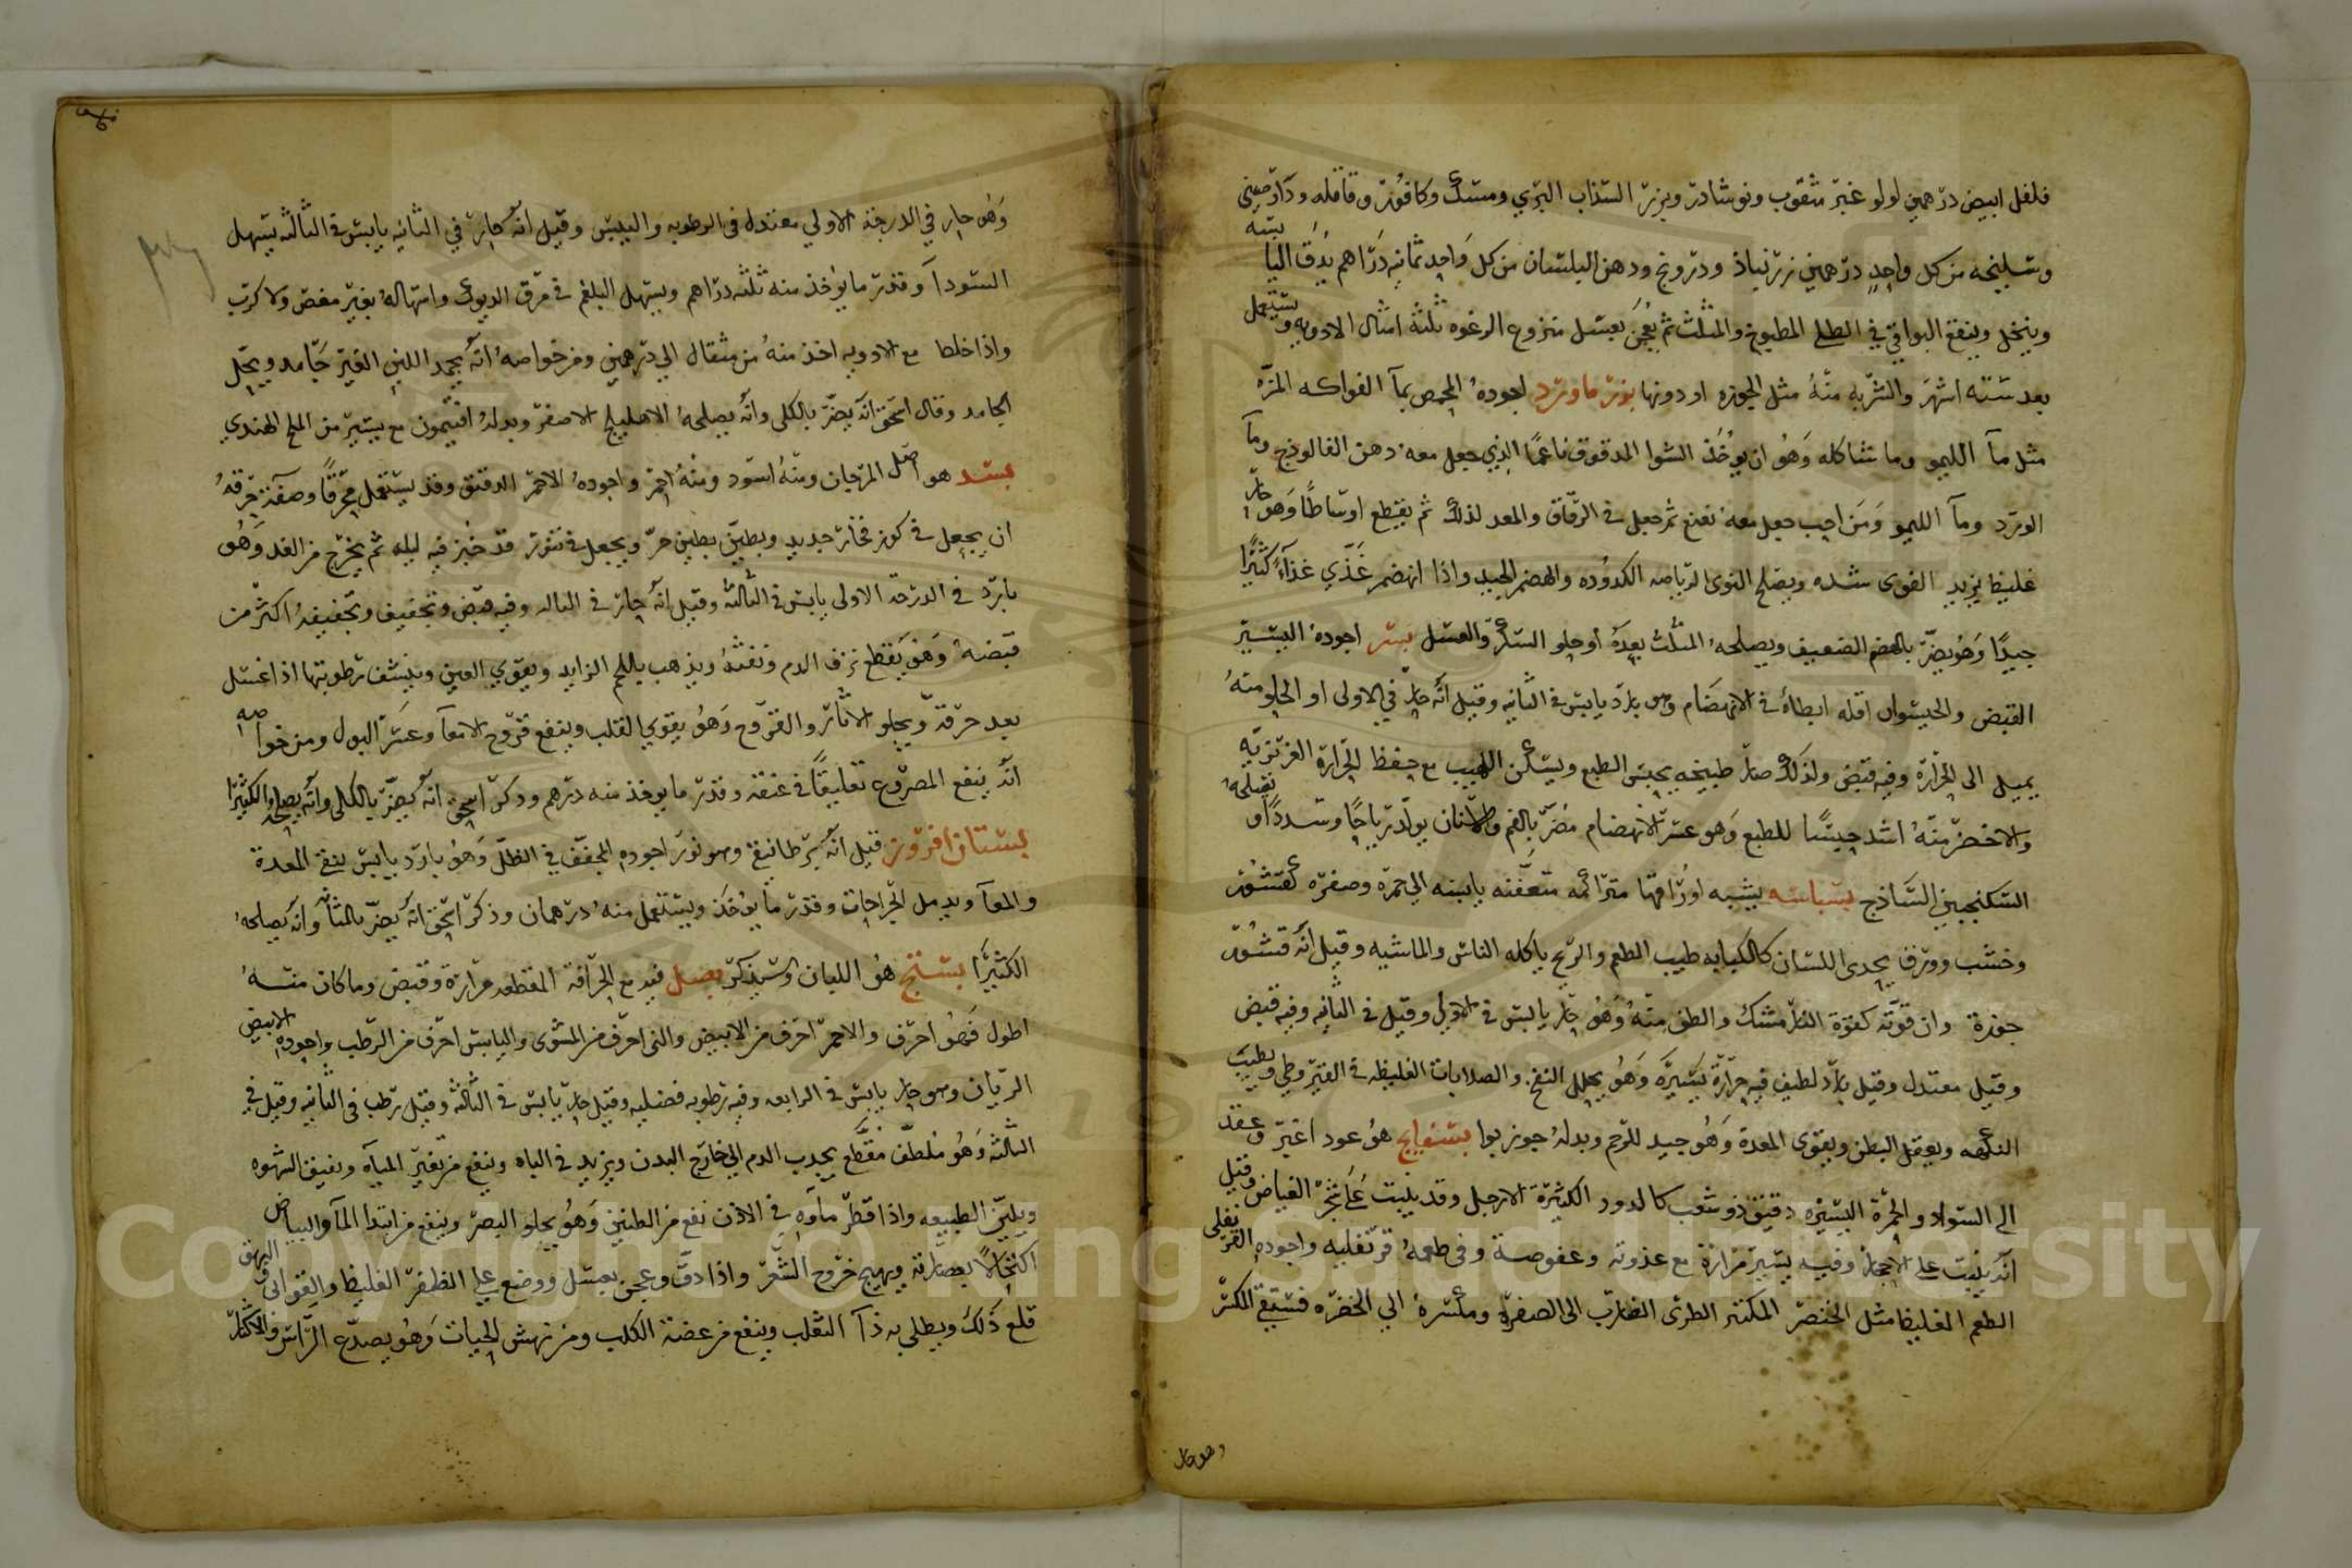 فلفل ابيض درهمين لولو غير مثقوب ونوشادر وبزر السذاب البري ومسك وكافور وقاقله ودار صيني
وسليخه من كل واحد درهمين زرنباذ ودرونج ودهن البلسان من كل واحد ثمانيه دراهم يدق اليابسه
وينخل وينقع البواقي في الطلى المطبوخ والمثلث ثم يعجن بعسل منزوع الرغوه ثلثة امثال الادويه ويستعمل
بعد سته اشهر والشربه منه مثل الجوزه او دونها بزماورد اجوده المحمص بمآ الفواكه المزه
مثل مآ الليمو وما شاكله وهو ان يوخذ الشوا المدقوق ناعمًا الذي جعل معه دهن الفالوذج ومآ
الورد ومآ الليمو ومن احب جعل معه نعنع ثم جعل في الرقاق والمعد لذلك ثم يقطع اوساطًا وهو حار
غليظ يزيد القوى شده ويصلح لذوى الرياضه الكدوده والهضم الجيد واذا انهضم غذي غذآء كثيرًا
جيدًا وهو يضر بالهضم الضعيف ويصلحه المثلث بعده أو حلو السكر والعسل بسر اجوده اليسير
القبض والحيسوان اقله ابطاء في الانهضام وهو بارد يابس في الثانيه وقيل انه حار في الاولى او الحلو منه
يميل الى الحرارة وفيه قبض ولذلك صار طبيخه يحبس الطبع ويسكن اللهيب مع حفظ الحرارة الغريزيه
والاخضر منه اشد حبسًا للطبع وهو عسر الانهضام مضر بالفم والاسنان يولد رياحًا وسددًا ويصلحه
السكنجبين الساذج بسباسه يشبه اوراقها متراكمه متعففنه يابسه الى حمره وصفره كقشور
وخشب وورق يحذى اللسان كالكبابه طيب الطعم والريح ياكله الناس والماشيه وقيل انه قشور
جوزة وان قوته كقوة النارمشك والطف منه وهو حار يابس في الاولى وقيل في الثانيه وفيه قبض
وقيل معتدل وقيل بارد لطيف فيه حرارة يسيره وهو يحلل النفخ والصلابات الغليظه في القيروطي ويطيب
النكهه ويعقل البطن ويقوى المعدة وهو جيد للرحم وبدله جوز بوا بسفايج هو عود اغبر وعقد
الى السواد والحمرة اليسيره دقيق ذو شعب كالدود الكثيرة الارجل وقد ينبت على شجر الغياض وقيل
انه ينبت على الاحجار وفيه يسير مرارة مع عذوبه وعفوصة وفى طعمه قرنفليه واجوده القرنفلى
الطعم الغليظ مثل الخنصر المكتنز الطرى الضارب الى الصفرة ومكسره الى الخضره فستقي المكسر
وهو حار
وهو حار في الدرجة الاولي معتدل في الرطوبه واليبس وقيل انه حار في الثانيه يابس في الثالثه يسهل
السودآ وقدر ما يوخذ منه ثلثه دراهم ويسهل البلغم في مرق الديوك واسهاله بغير مغص ولا كرب
واذا خلط مع الادويه اخذ منه من مثقال الي درهمين ومن خواصه انه يجمد اللبن الغير جامد ويحل
الجامد وقال اسحق انه يضر بالكلى وانه يصلحه الاهليلج الاصفر وبدله افتيمون مع يسير من الملح الهندي
بسد هو اصل المرجان ومنه اسود ومنه احمر واجوده الاحمر الدقيق وقد يستعمل محرقًا وصفة حرقه
ان يجعل في كوز فخار جديد ويطين بطين حر ويجعل في تنور قد خبز فيه ليله ثم يخرج من الغد وهو
بارد في الدرجة الاولى يابس في الثالثه وقيل انه حار في الثالثه وفيه قبض وتجفيف وتجفيفه اكثر من
قبضه وهو يقطع نزف الدم ونفثه ويذهب باللحم الزايد ويقوي العين وينشف رطوبتها اذا غسل
بعد حرقه ويجلو الاثار والقروح وهو يقوي القلب وينفع قروح الامعآ وعسر البول ومن خواصه
انه ينفع المصروع تعليقًا في عنقه وقدر ما يوخذ منه درهم وذكر اسحق انه يضر بالكلى وانه يصلحه الكثيرا
بستان افروز قيل انه برطانيقي وهو نور اجوده المجفف في الظل وهو بارد يابس ينقي المعدة
والمعآ ويدمل الجراحات وقدر ما يوخذ ويستعمل منه درهمان وذكر اسحق انه يضر بالمثانه وانه يصلحه
الكثيرا بستج هو اللبان وسيذكر بصل فيه مع الحرافة المقطعه مرارة وقبض وما كان منه
اطول فهو احرف والاحمر احرف من الابيض والنى احرف من المشوى واليابس احرف من الرطب واجوده الابيض
الريان وهو حار يابس في الرابعه وفيه رطوبه فضليه وقيل حار يابس في الثالثه وقيل رطب في الثانيه وقيل في
الثالثه وهو ملطف مقطع يجذب الدم الى خارج البدن ويزيد في الباه وينفع من تغير المياه ويفتق الشهوه
ويلين الطبيعه واذا قطر مآوه في الاذن نفع من الطنين وهو يجلو البصر وينفع من ابتدا المآ والبياض
اكتحالًا بعصارته ويهيج خروج الشعر واذا دق وعجن بعسل ووضع على الظفر الغليظ والقوابى والبهق
قلع ذلك ويطلى به دآ الثعلب وينفع من عضة الكلب ومن نهش الحيات وهو يصدع الراس والاكثار